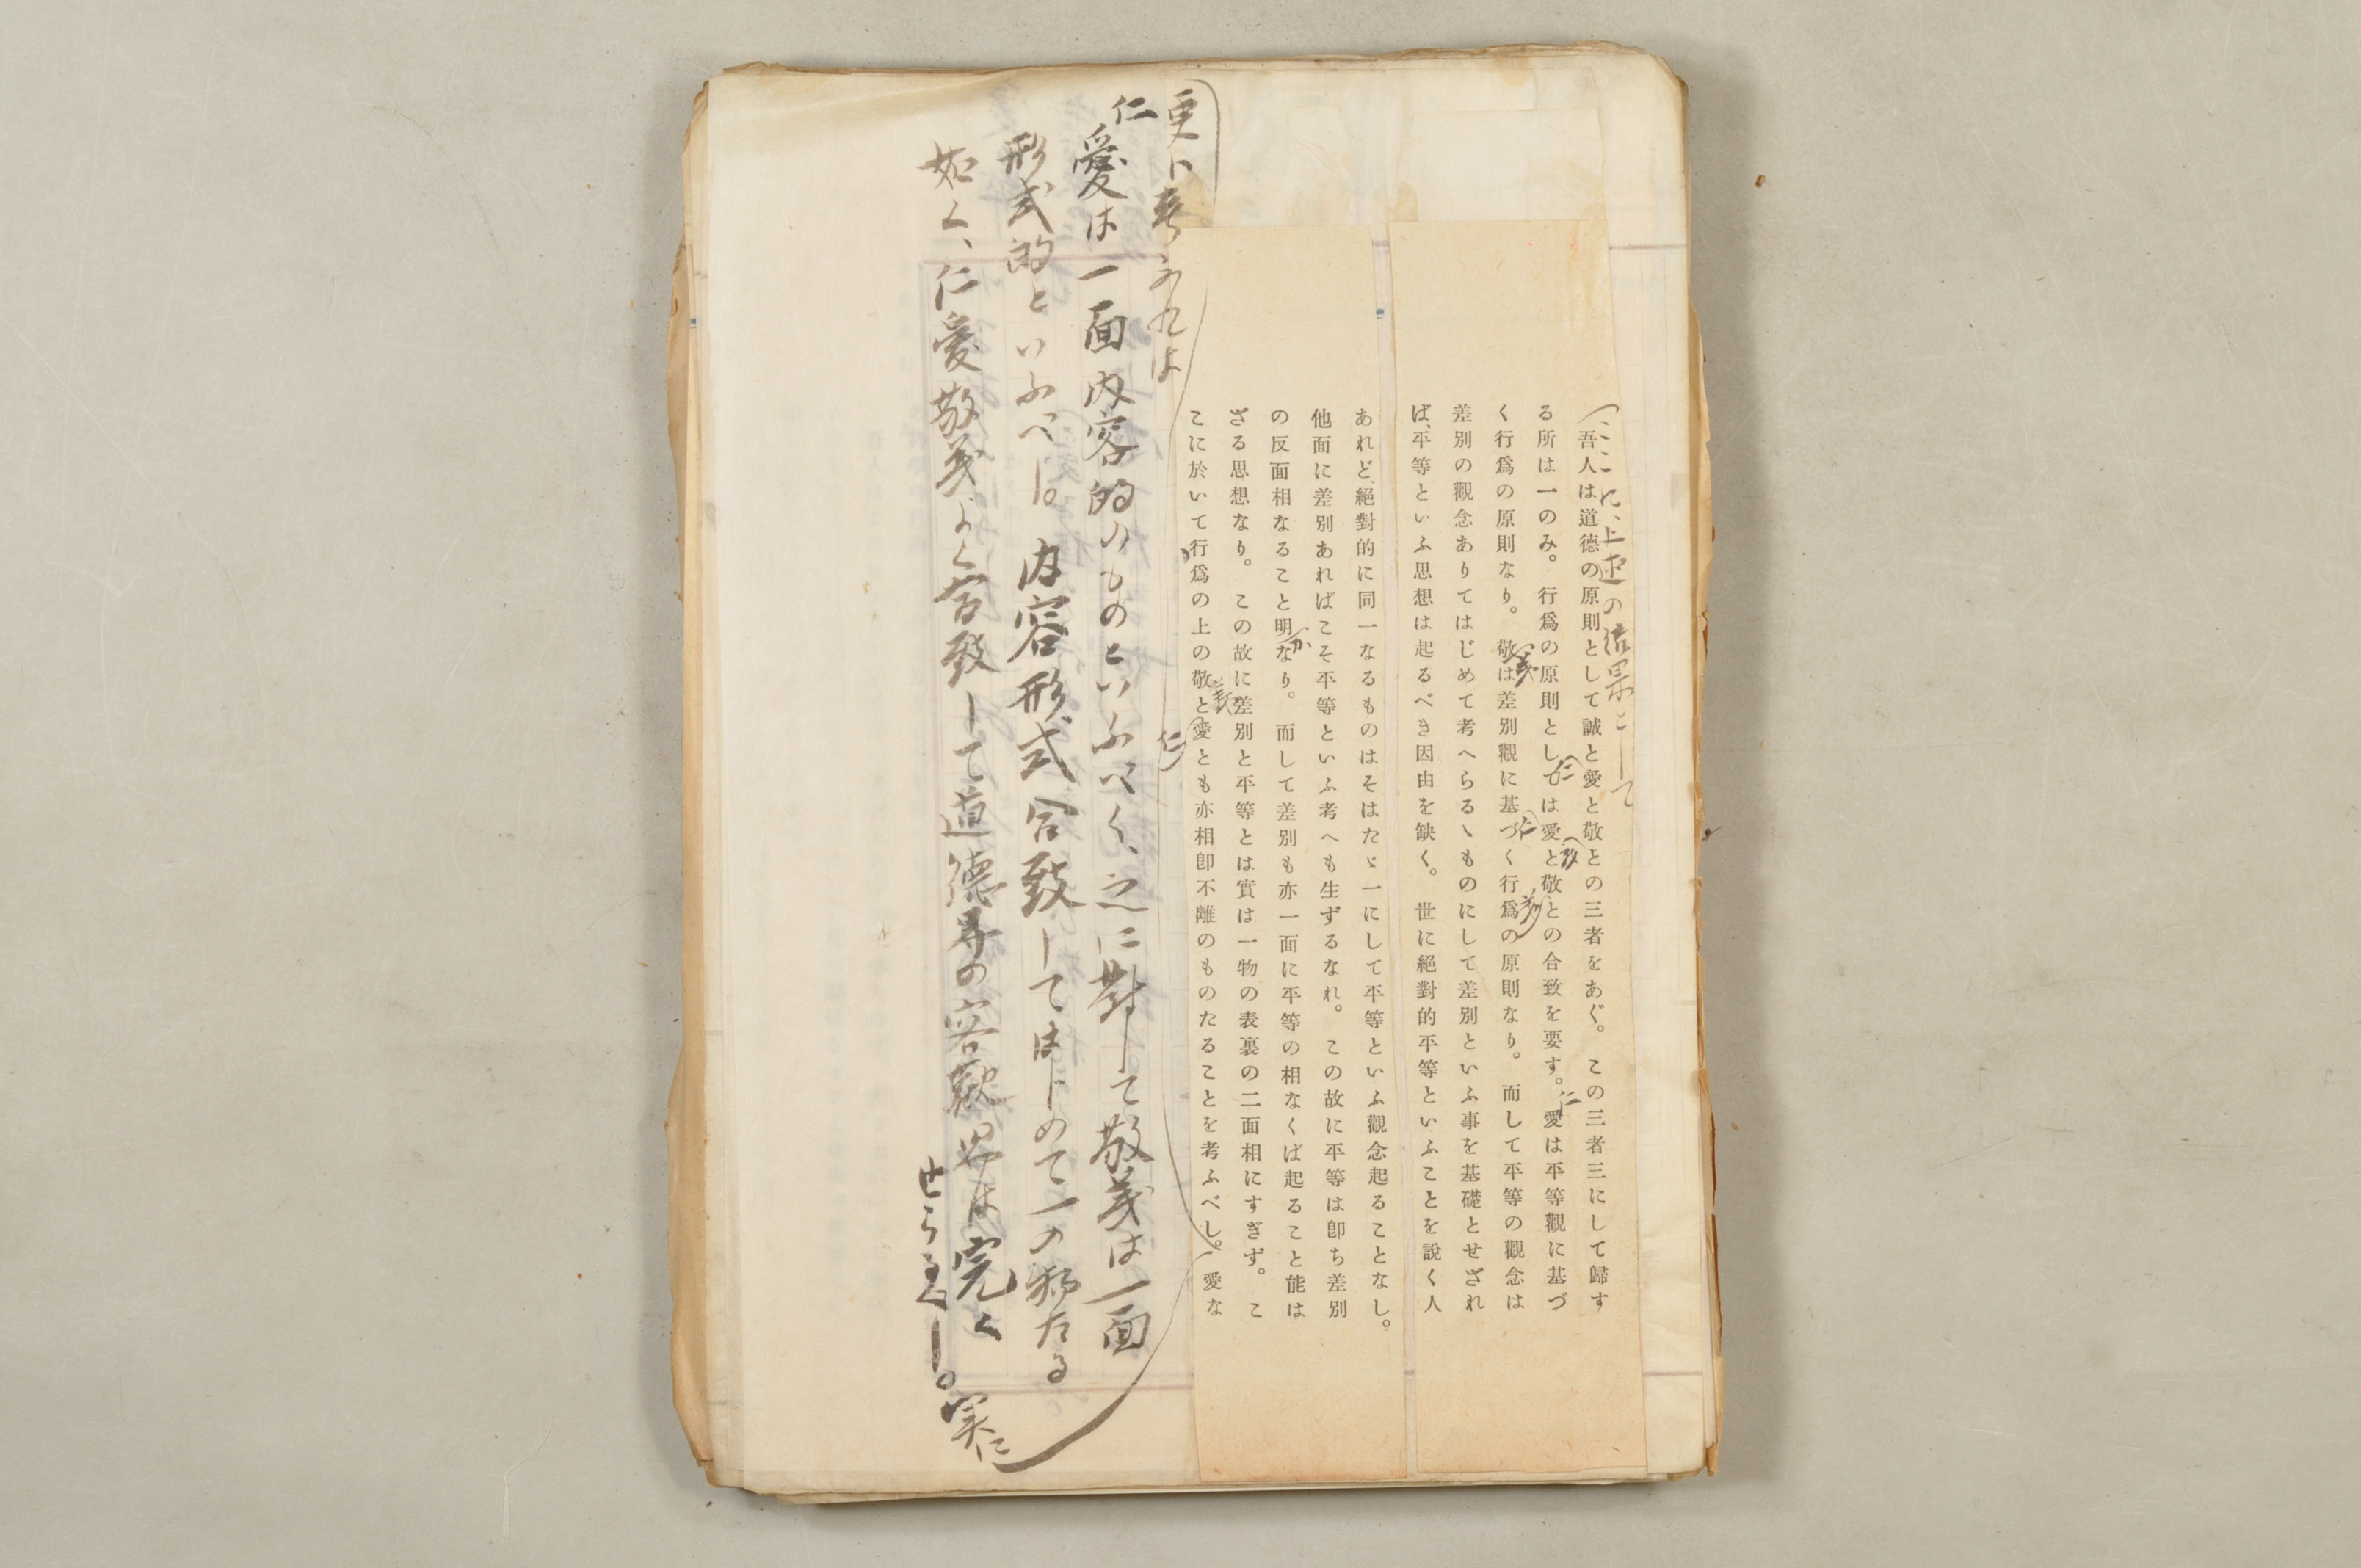 こゝに、上述の結果として
吾人は道德の原則として誠と愛と敬との三者をあぐ。この三者三にして歸す
仁
敬
る所は一のみ。行爲の原則としては愛と敬との合致を要す。愛は平等觀に基づ
義
仁
く行爲の原則なり。敬は差別觀に基づく行爲の原則なり。而して平等の觀念は
義
仁
差別の觀念ありてはじめて考へらるゝものにして差別といふ事を基礎とせざれ
ば、平等といふ思想は起るべき因由を缺く。世に絕對的平等といふことを說く人
あれど、絕對的に同一なるものはそはたゞ一にして平等といふ觀念起ることなし。
他面に差別あればこそ平等といふ考へも生ずるなれ。この故に平等は卽ち差別
の反面相なること明なり。而して差別も亦一面に平等の相なくば起ること能は
か
ざる思想なり。この故に差別と平等とは實は一物の表裏の二面相にすぎず。こ
こに於いて行爲の上の敬と愛とも亦相卽不離のものたることを考ふべし。愛な
義
仁
更に考ふれは
仁愛は一面内容的のものといふべく、之に對して敬義は一面
形式的といふべし。内容形式合致してはじめて一の物たる
如く、仁愛敬義よく合致して道德界の客觀界は完く
せらるべし。実に